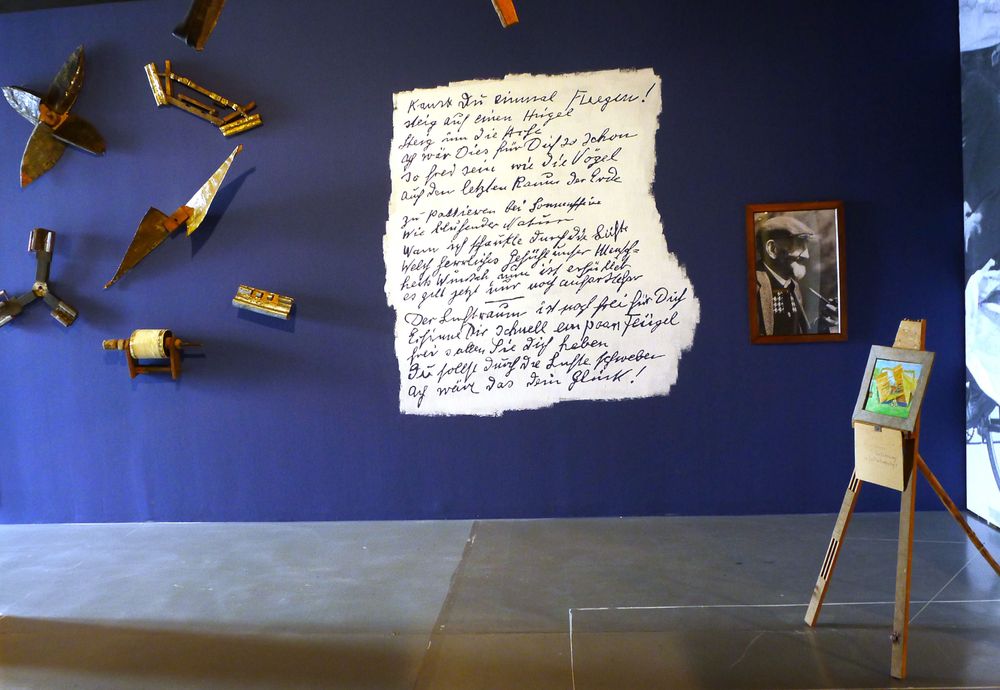 Kannst Du einmal Fliegen!
steig auf einen Hügel
Steig um die Achse
ach wär Dies für Dich so schon
so frei sein wie die Vögel
auf den letzten Raum der Erde
zu pattieren bei Sonnenschein
wie bluhender Natur
Wann ich schaukle durch die Lüfte
Welch herrliches Gefühl unser Mensch-
heits Wunsch, nun ist erfüllet
es gilt jetzt nur noch
Der Luftraum ist noch frei für Dich
Dir schnell ein paar Flügel
frei sollen Sie Dich heben
Du sollst durch die Lüfte schweben
Ach wäre das dein Glück!